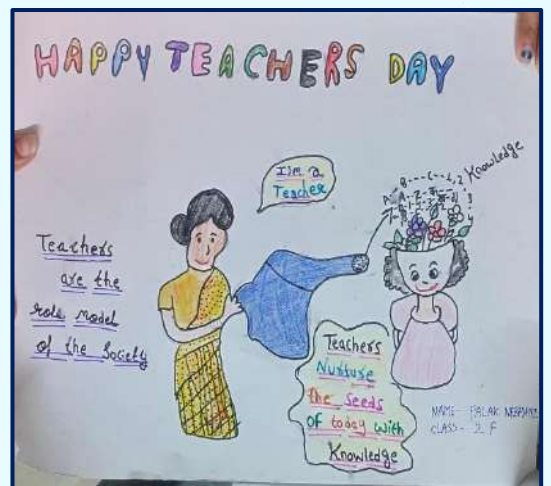 HAPPY TEACHERS DAY
I'm a
Teacher
Knowledge
Teachers
are the
role model
of the Society
Teachers
Nurture
the Seeds
of today with
Knowledge
NAME- PALAK
CLASS- 2 F